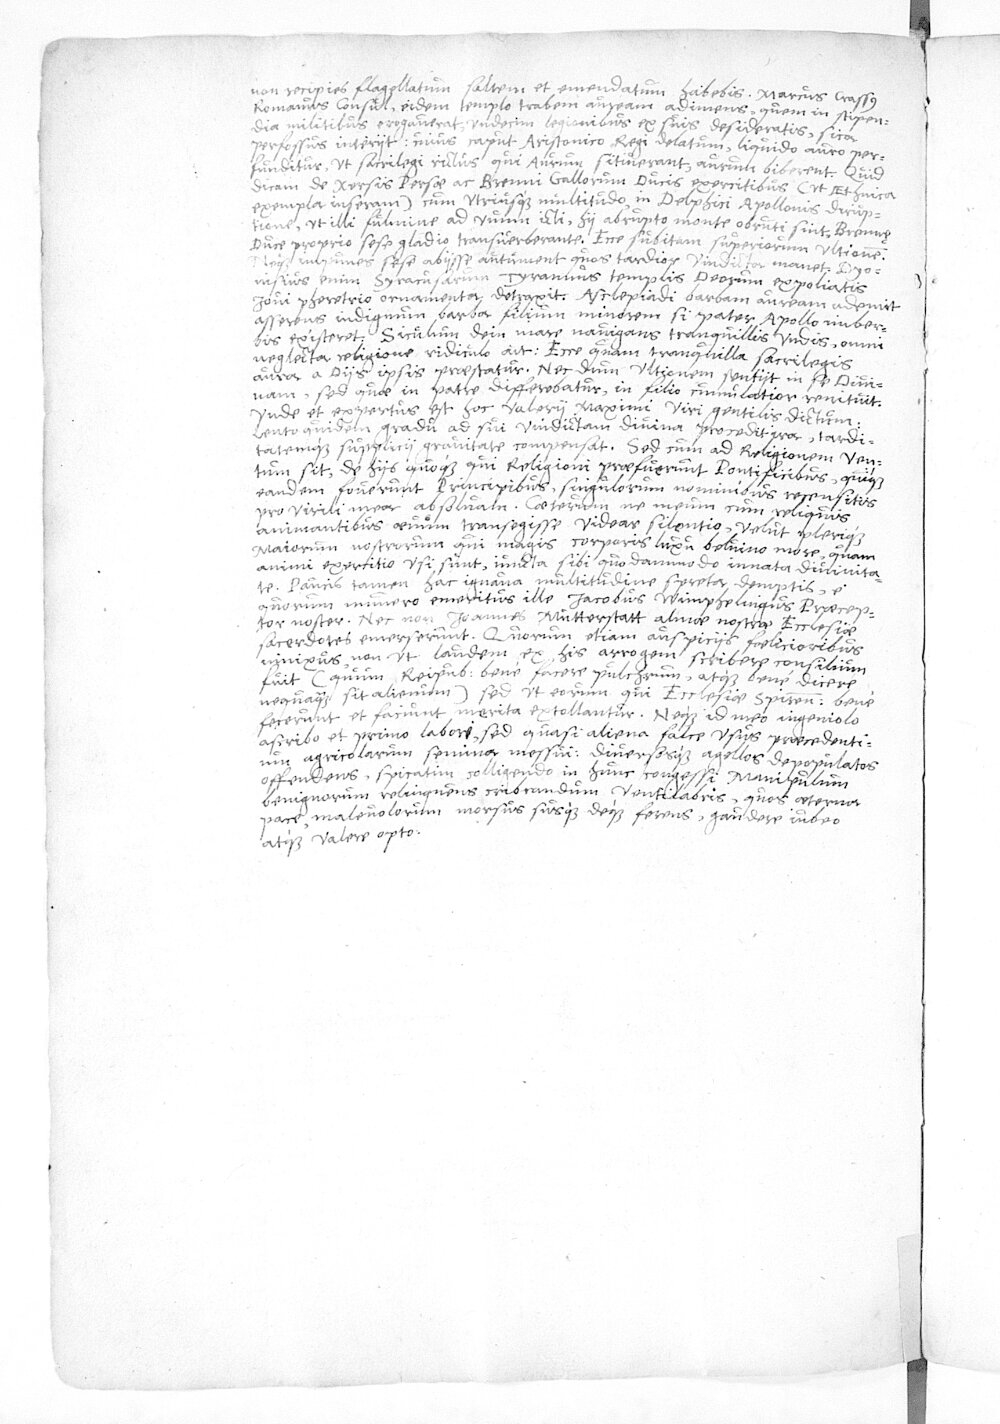 non recipies flagellatum saltem et emendatum habebis. Marcus Crassus
Romanus Consul, eidem templo trabem auream adimens, quem in stipen-
dia militibus erogauerat, undecim legionibus ex suis desideratis, sica
perfossus interijt: cuius caput Aristonico Regi delatum, liquido auro per-
funditur, ut sacrilegi rictus qui Aurum sitiuerant, aurum biberent. Quid
dicam de Xersis Persæ ac Brenni Gallorum Ducis exercitibus (ut Æthnica
exempla inseram) cum utriusq; multitudo, in Delphici Apollonis dirup-
tione, ut illi fulmine ad unum icti, hij abrupto monte obruti sint, Brennę
Duce proprio sese gladio transuerberante. Ecce subitam superiorum Ultionē.
Neq; impunes sese abijsse autument quos tardior Vindicta manet. Dyo-
nisius enim Syracusarum Tyrannus templis Deorum expoliatis
Joui pheretrio ornamenta detraxit. Asclepiadi barbam auream ademit
asserens indignum barba filium minorem si pater Apollo imber-
bis existeret. Siculum dein mare nauigans tranquillis undis, omni
neglecta religione ridiculo ait: Ecce quam tranquilla sacrilegis
aura a Dijs ipsis præstatur. Nec dum Ultionem sensijt in se Diui-
nam, sed quæ in patre differebatur, in filio cumulatior renituit.
Vnde et expertus est hoc Valerij Maximi Viri gentilis dictum:
Lento quidem gradu ad sui Vindictam diuina procedit ira, tardi-
tatemq; supplicij grauitate compensat. Sed cum ad Religionem Ven-
tum sit, de hijs quoq; qui Religioni præfuerunt Pontificibus, quiq;
eandem fouerunt Principibus, singulorum nominibus recensitis
pro Virili mea absoluam. Cæterum ne meum cum reliquis
animantibus æuum transegisse videar silentio, velut pleriq;
Maiorum nostrorum qui magis corporis luxu beluino more, quam
animi exercitio Vsi sunt, iuncta sibi quodammodo innata diuinita-
te. Paucis tamen hac ignaua multitudine spreta demptis, e
quorum numero emeritus ille Jacobus Wimphelingus Præcep-
tor noster. Nec non Joannes Mutterstatt almæ nostræ Ecclesiæ
sacerdotes emerserunt. Quorum etiam auspicijs fœlicioribus
innixus, non ut laudem ex his arrogem scribere consilium
fuit (quum Reipub: bené facere pulchrum, atq; bené dicere
nequaq; sit alienum) sed ut eorum qui Ecclesiæ Spiren: bené
fecerunt et faciunt merita extollantur. Neq; id meo ingeniolo
ascribo et primo labori, sed quasi aliena falce Vsus præcedenti-
um agricolarum semina messui: diuersosq; agellos depopulatos
offendens, spicatim colligendo in hunc congessi Manipulum
benignorum relinquens cribrandum Ventilabris, quos æterna
pace, maleuolorum morsus susq; deq; ferens, gaudere iubeo
atq; Valere opto.